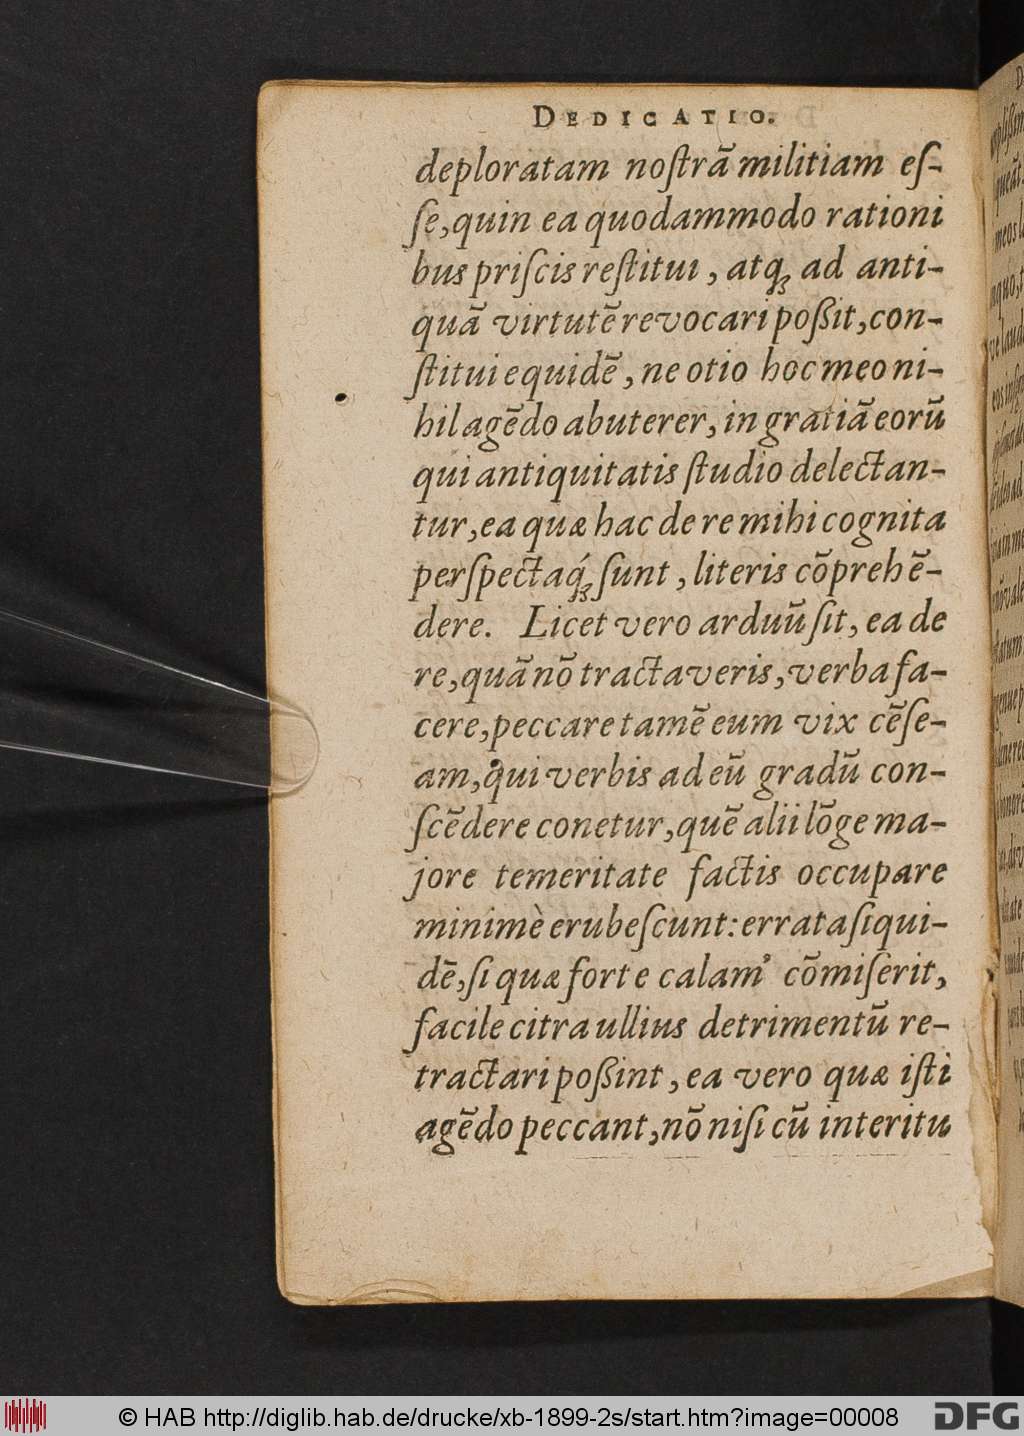 DEDICATIO.
deploratam nostrã militiam eſ-
ſe, quin ea quodammodo rationi
bus priſcis reſtitui, atq́ꝫ ad anti-
quã virtutẽ revocari poßit, con-
ſtitui equidẽ, ne otio hoc meo ni-
hil agẽdo abuterer, in gratiã eorũ
qui antiquitatis ſtudio delectan-
tur, ea quæ hac de re mihi cognita
perſpectaq́ꝫ ſunt, literis cõprehẽ-
dere. Licet vero arduũ ſit, ea de
re, quã nõ tractaveris, verba fa-
cere, peccare tamẽ eum vix cẽſe-
am, qui verbis ad eũ gradũ con-
ſcẽdere conetur, quẽ alii lõge ma-
jore temeritate factis occupare
minimè erubeſcunt: errata ſiqui-
dẽ, ſi quæ forte calamꝰ cõmiſerit,
facile citra ullius detrimentũ re-
tractari poßint, ea vero quæ iſti
agẽdo peccant, nõ niſi cũ interitu
© HAB http://diglib.hab.de/drucke/xb-1899-2s/start.htm?image=00008
DFG